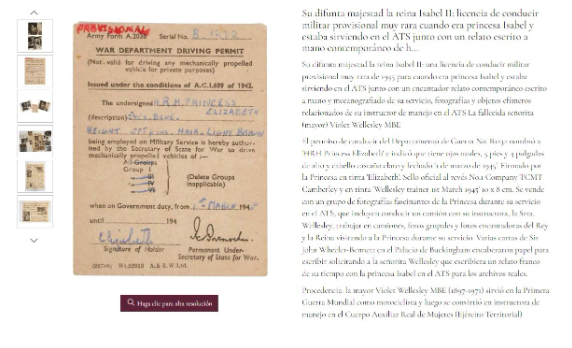 PROVISIONAL
Army Form A.2038 Serial No. B
WAR DEPARTMENT DRIVING PERMIT
(Not valid for driving any mechanically propelled
vehicle for private purposes)
Issued under the conditions of A.C.I.699 of 1942.
The undersigned H.R.H. PRINCESS
ELIZABETH
(description) EYES. BLUE.
HEIGHT HAIR. LIGHT BROWN
being employed on Military Service is hereby author-
ised by the Secretary of State for War to drive
mechanically propelled vehicles of :—
All Groups
Group I
(Delete Groups
inapplicable)
when on Government duty, from 1st MARCH 194
until 194
Elizabeth
Signature of Holder
Permanent Under-
Secretary of State for War.
Haga clic para alta resolución
Su difunta majestad la reina Isabel II: licencia de conducir
militar provisional muy rara cuando era princesa Isabel y
estaba sirviendo en el ATS junto con un relato escrito a
mano contemporáneo de h...
Su difunta majestad la reina Isabel II: una licencia de conducir militar
provisional muy rara de 1945 para cuando era princesa Isabel y estaba
sirviendo en el ATS junto con un encantador relato contemporáneo escrito
a mano y mecanografiado de su servicio, fotografías y objetos efímeros
relacionados de su instructor de manejo en el ATS La fallecida señorita
(mayor) Violet Wellesley MBE
El permiso de conducir del Departamento de Guerra No. nombró a
'HRH Princess Elizabeth' e indicó que tiene ojos azules, 5 pies y 4 pulgadas
de alto y cabello castaño claro y fechado '1 de marzo de 1945'. Firmado por
la Princesa en tinta 'Elizabeth'. Sello oficial al revés No.1 Company TCMT
Camberley y en tinta. Wellesley trainer 1st March 1945' 10 x 8 cm. Se vende
con un grupo de fotografías fascinantes de la Princesa durante su servicio
en el ATS, que incluyen conducir un camión con su instructora, la Srta.
Wellesley, trabajar en camiones, fotos grupales y fotos encantadoras del Rey
y la Reina visitando a la Princesa durante su servicio. Varias cartas de Sir
John Wheeler-Bennett en el Palacio de Buckingham encabezaron papel para
escribir solicitando a la señorita Wellesley que escribiera un relato franco
de su tiempo con la princesa Isabel en el ATS para los archivos reales.
Procedencia: la mayor Violet Wellesley MBE (1897-1971) sirvió en la Primera
Guerra Mundial como motociclista y luego se convirtió en instructora de
manejo en el Cuerpo Auxiliar Real de Mujeres (Ejército Territorial)